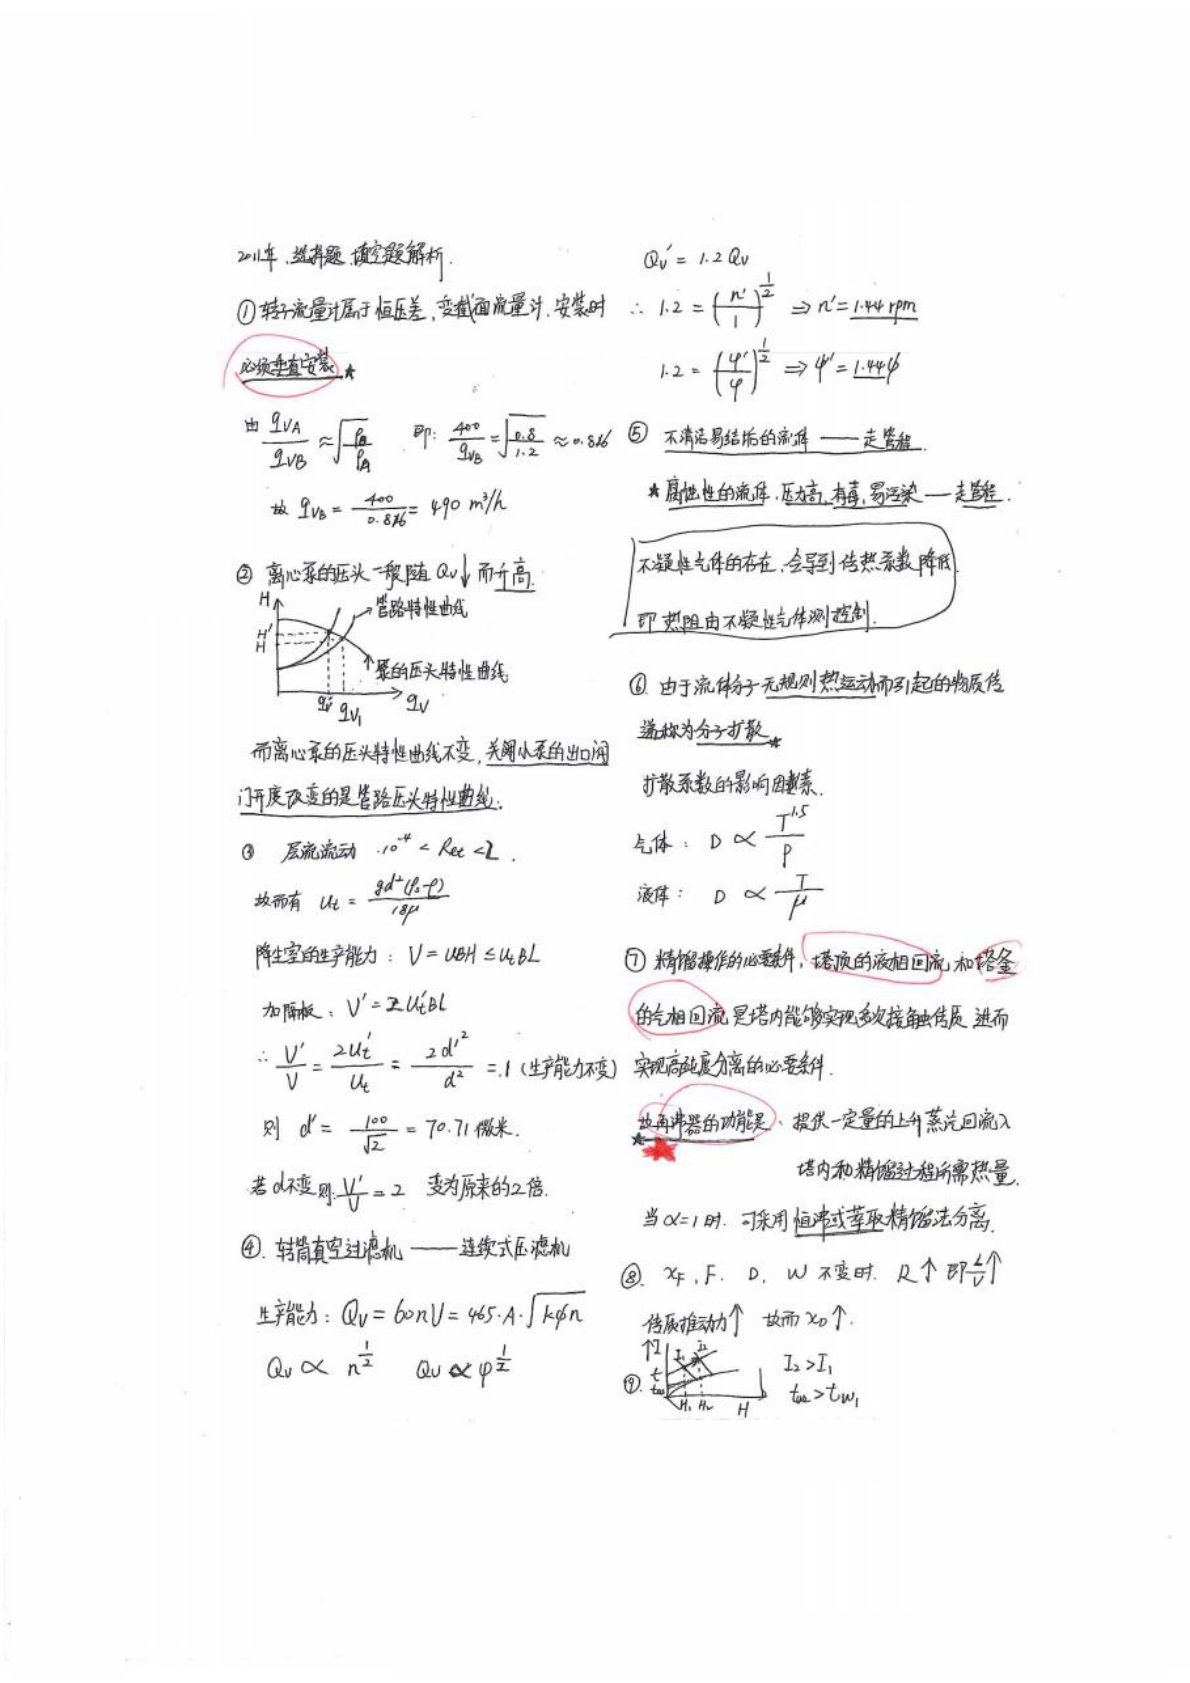 2011年、选择题、填空题解析.
①转子流量计属于恒压差、变截面流量计.安装时
必须垂直安装★
由 qVA/qVB ≈ √(ρB/ρA) 即: 400/qVB = √(0.8/1.2) ≈ 0.816
故 qVB = 400/0.816 = 490 m³/h
② 离心泵的压头一般随 Qv↓ 而升高.
H
管路特性曲线
H'
H
泵的压头特性曲线
qv' qV1 qV
而离心泵的压头特性曲线不变,关闭小泵的出口阀
门开度改变的是管路压头特性曲线.
③ 层流流动 10⁻⁴ < Ret < 2.
故而有 ut = gd²(ρs-ρ)/18μ
降尘室的生产能力: V = uBH ≤ utBL
加隔板: V' = 2ut'BL
∴ V'/V = 2ut'/ut = 2d'²/d² = 1 (生产能力不变)
则 d' = 100/√2 = 70.71 微米.
若d不变则: V'/V = 2 变为原来的2倍.
④. 转筒真空过滤机 —— 连续式压滤机
生产能力: Qv = 60nV = 465·A·√(kφn)
Qv ∝ n^(1/2) Qv ∝ φ^(1/2)
Qv' = 1.2 Qv
∴ 1.2 = (n'/1)^(1/2) ⇒ n' = 1.44 rpm
1.2 = (φ'/φ)^(1/2) ⇒ φ' = 1.44φ
⑤ 不清洁易结垢的流体 —— 走管程.
★腐蚀性的流体、压力高、有毒、易污染 — 走管程.
不凝性气体的存在,会导到传热系数降低
即热阻由不凝性气体测控制.
⑥. 由于流体分子无规则热运动而引起的物质传
递称为分子扩散★
扩散系数的影响因素.
气体: D ∝ T^1.5/P
液体: D ∝ T/μ
⑦ 精馏操作的必要条件,塔顶的液相回流和塔釜
的气相回流是塔内能够实现多次接触传质 进而
实现高纯度分离的必要条件.
故再沸器的功能是、提供一定量的上升蒸汽回流入
★
塔内和精馏过程所需热量.
当 α=1 时. 可采用恒沸或萃取精馏法分离.
⑧. xF、F、D、W 不变时. R↑ 即 L/V↑
传质推动力↑ 故而 xD↑.
⑨. I I1 I2 I2 > I1
t tw tw2 > tw1
H1 H2 H